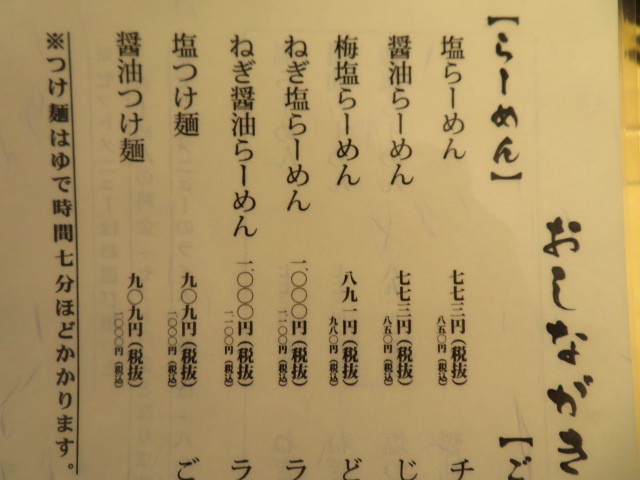 おしながき
【らーめん】
塩らーめん 七七三円（税抜）
八五〇円（税込）
醤油らーめん 七七三円（税抜）
八五〇円（税込）
梅塩らーめん 八九一円（税抜）
九八〇円（税込）
ねぎ塩らーめん 一、〇〇〇円（税抜）
一一〇〇円（税込）
ねぎ醤油らーめん 一、〇〇〇円（税抜）
一一〇〇円（税込）
塩つけ麺 九〇九円（税抜）
一〇〇〇円（税込）
醤油つけ麺 九〇九円（税抜）
一〇〇〇円（税込）
※つけ麺はゆで時間七分ほどかかります。
【ご
チ
じ
ど
ラ
ラ
ご